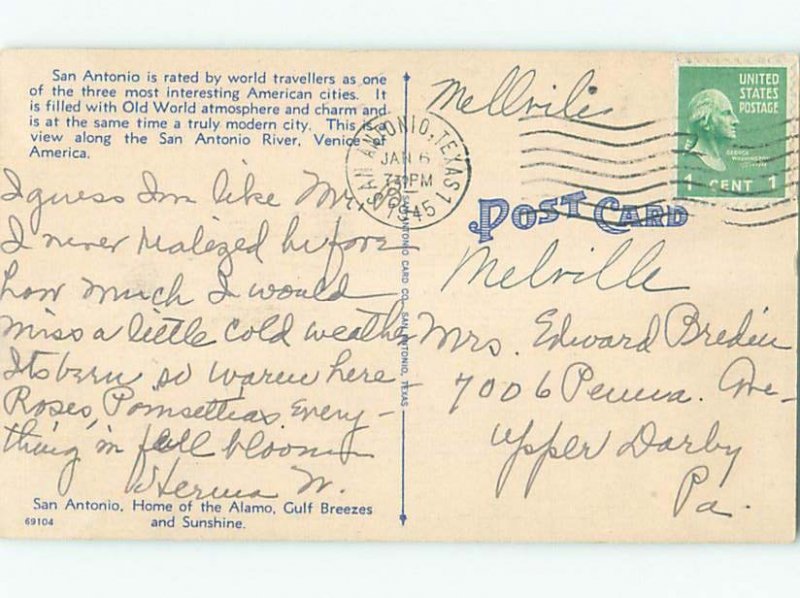 San Antonio is rated by world travellers as one
of the three most interesting American cities. It
is filled with Old World atmosphere and charm and
is at the same time a truly modern city. This is
view along the San Antonio River, Venice of
America.
I guess Im like Mrs
I never realized before
how much I would
miss a little cold weather
Its been so warm here
Roses, Poinsettias. Every-
thing in full bloom
Herma W.
San Antonio, Home of the Alamo, Gulf Breezes
and Sunshine.
69104
SAN ANTONIO CARD CO., SAN ANTONIO, TEXAS
SAN ANTONIO, TEXAS 1
JAN 6
7 30 PM
1945
UNITED
STATES
POSTAGE
GEORGE
WASHINGTON
1 CENT 1
POST CARD
Melville
Mrs. Edward Bredin
7006 Penna. Ave-
Upper Darby
Pa.